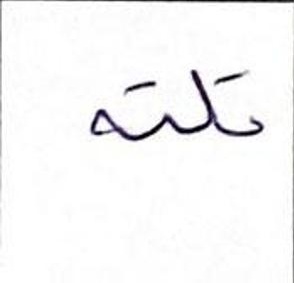 تلته